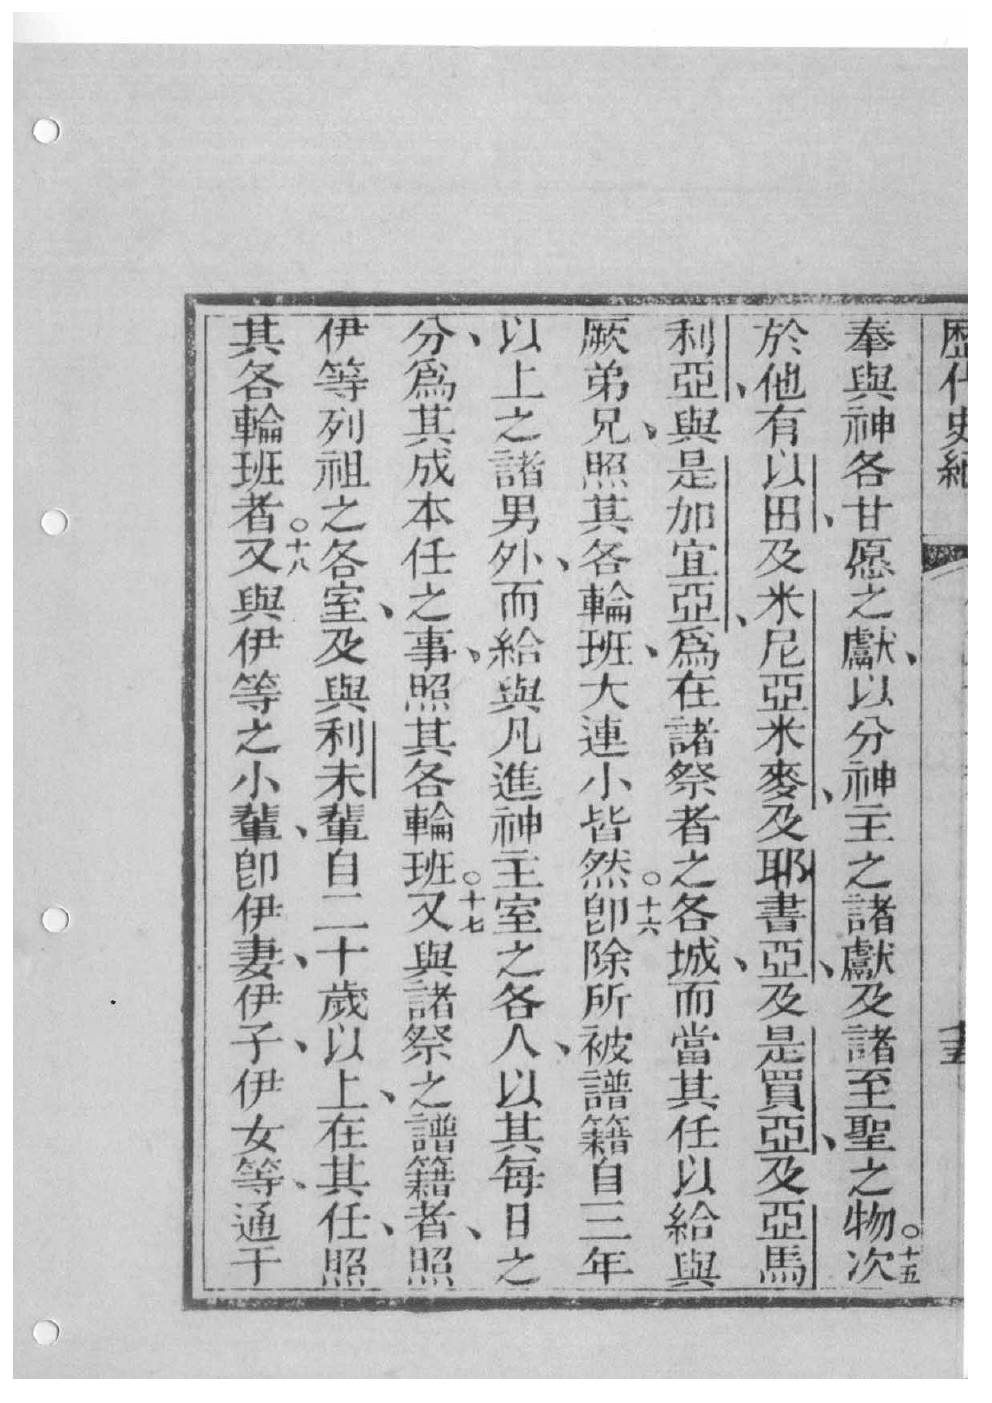 歷代史紀
奉與神各甘愿之獻、以分神主之諸獻及諸至聖之物。十五次
於他有以田、及米尼亞米麥、及耶書亞、及是買亞、及亞馬
利亞、與是加宜亞、爲在諸祭者之各城、而當其任以給與
厥弟兄、照其各輪班、大連小皆然。十六卽除所被譜籍自三年
以上之諸男外、而給與凡進神主室之各人、以其每日之
分、爲其成本任之事、照其各輪班。十七又與諸祭之譜籍者、照
伊等列祖之各室、及與利未輩自二十歲以上、在其任、照
其各輪班者。十八又與伊等之小輩、卽伊妻、伊子、伊女等、通于